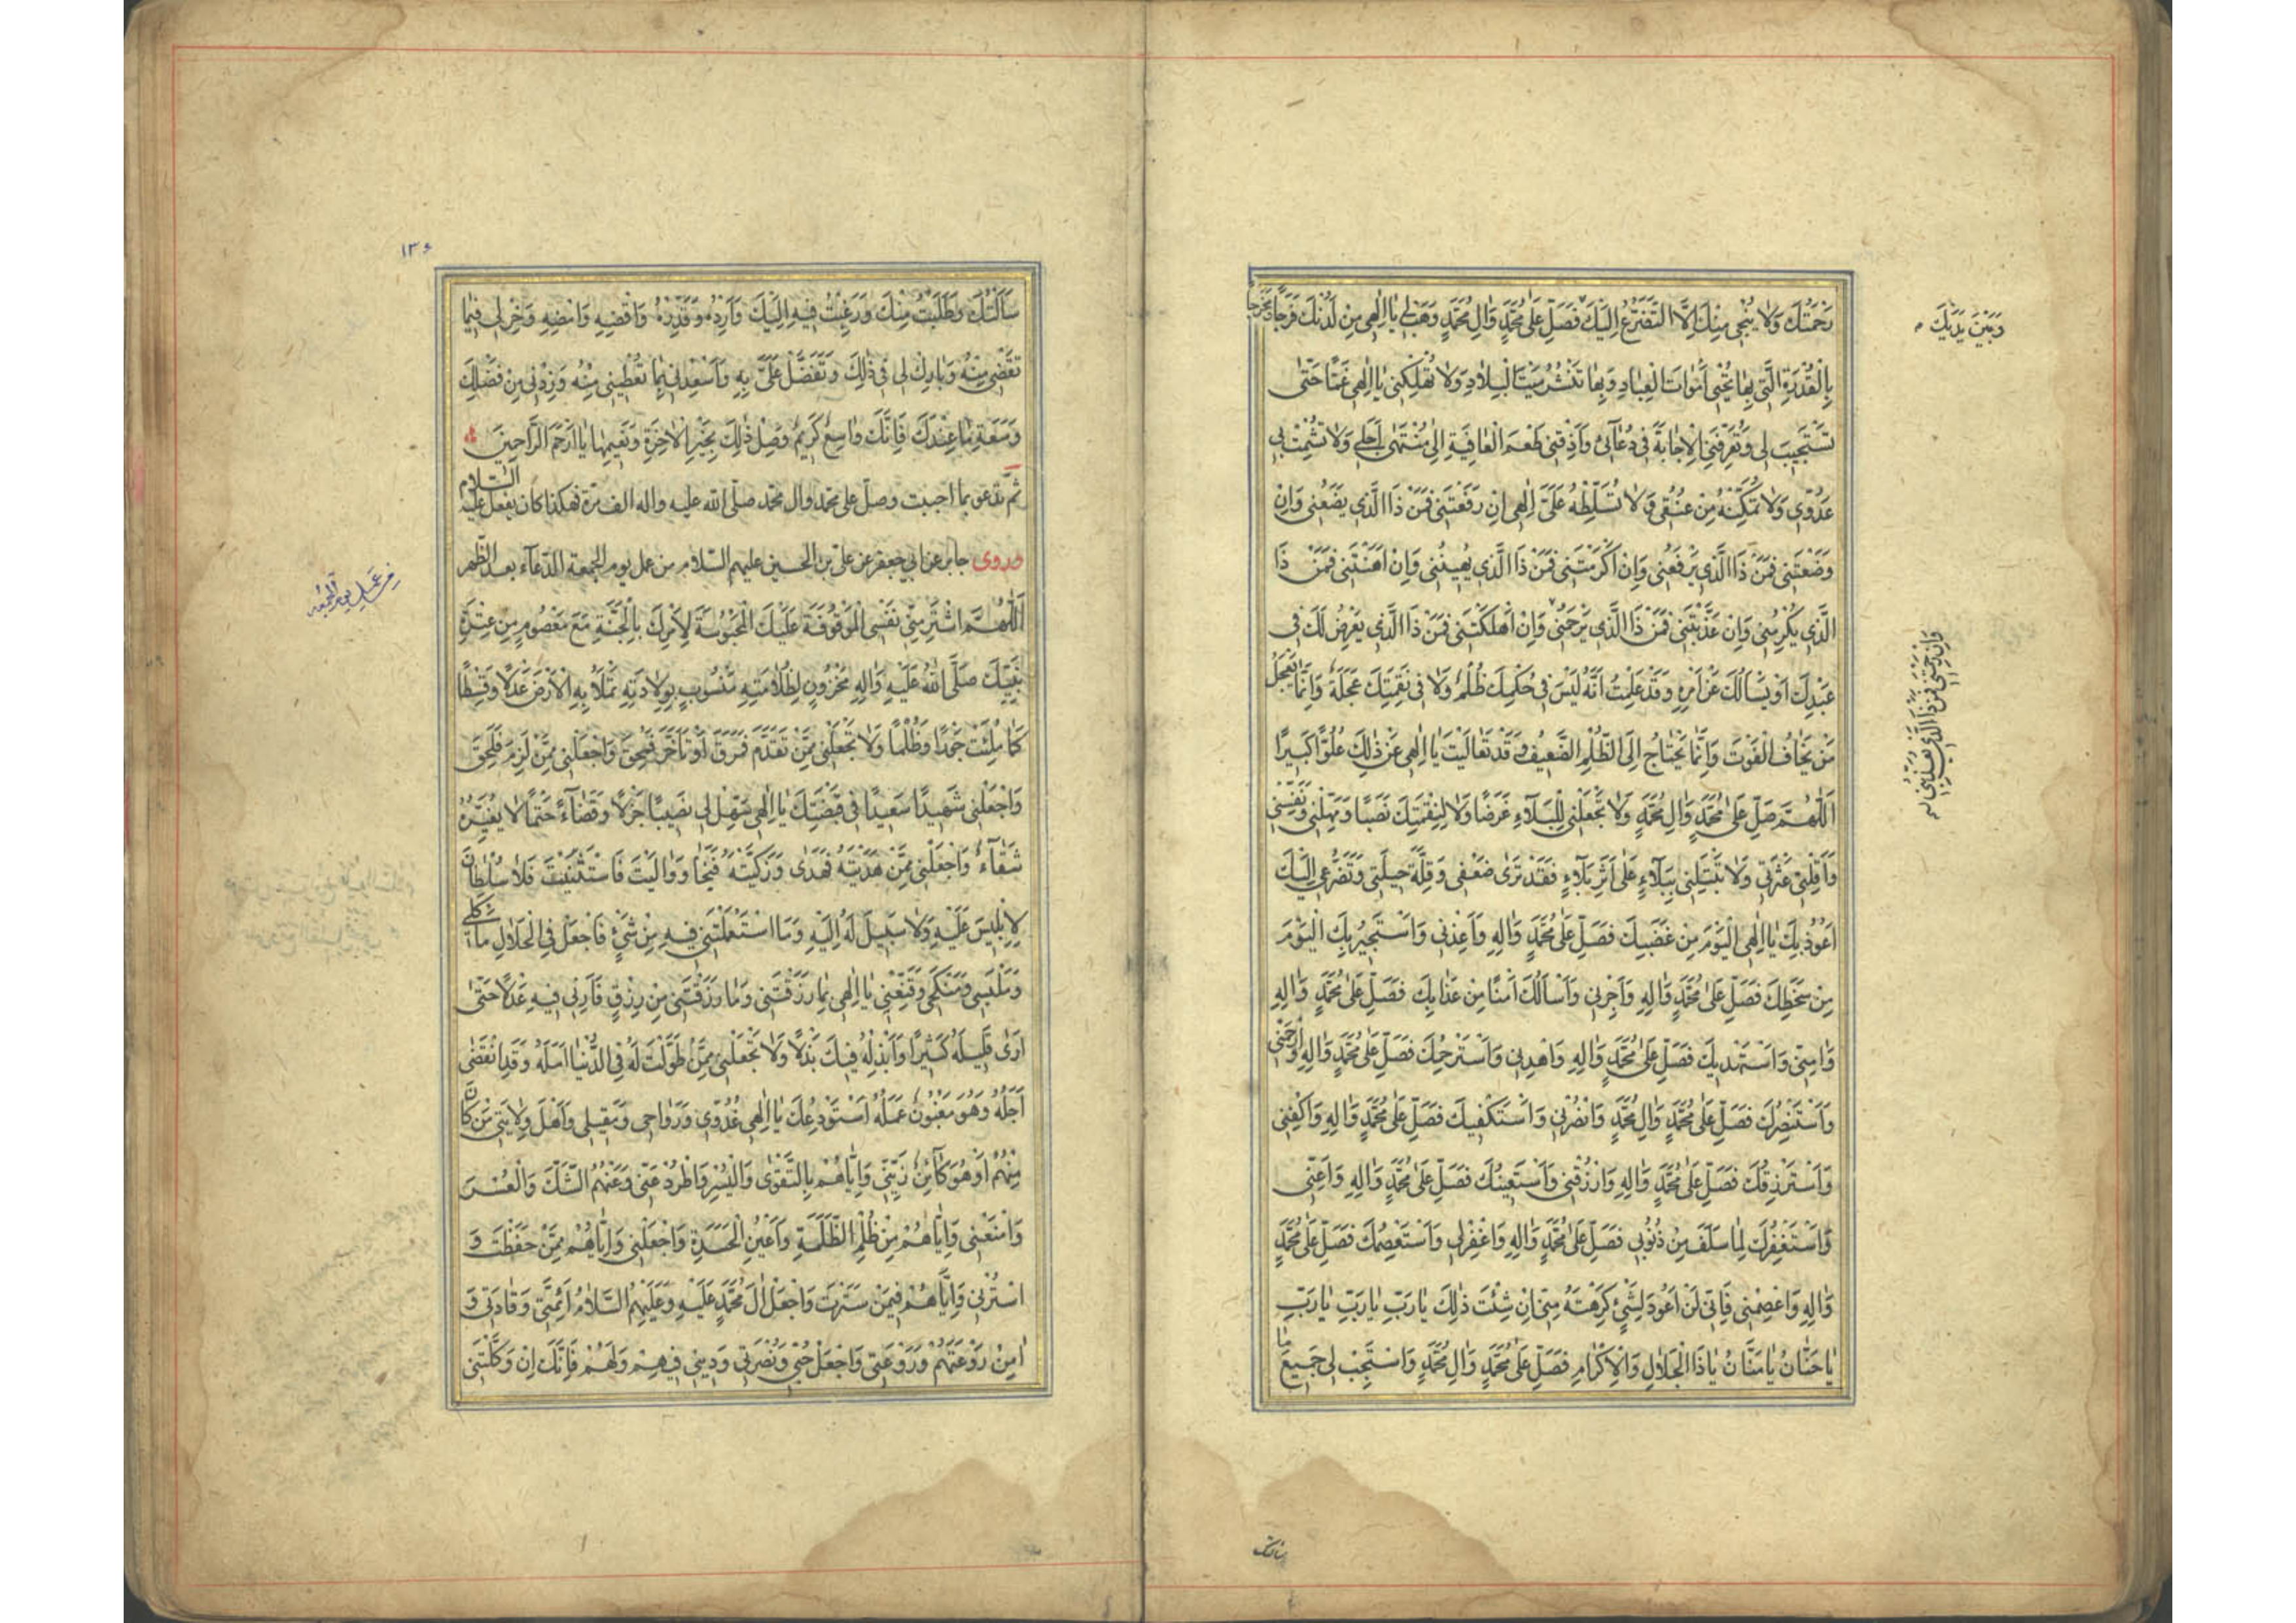 رَحْمَتُكَ وَلَا يُنْجِي مِنْكَ إِلَّا التَّضَرُّعُ إِلَيْكَ فَصَلِّ عَلَى مُحَمَّدٍ وَآلِ مُحَمَّدٍ وَهَبْ لِي يَا إِلٰهِي مِنْ لَدُنْكَ فَرَجًا وَمَخْرَجًا
وَبَيْنَ يَدَيْكَ
بِالْقُدْرَةِ الَّتِي بِهَا تُحْيِي أَمْوَاتَ الْعِبَادِ وَبِهَا تَنْشُرُ مَيْتَ الْبِلَادِ وَلَا تُهْلِكْنِي يَا إِلٰهِي غَمًّا حَتَّى
تَسْتَجِيبَ لِي وَتُعَرِّفَنِي الْإِجَابَةَ فِي دُعَائِي وَأَذِقْنِي طَعْمَ الْعَافِيَةِ إِلَى مُنْتَهَى أَجَلِي وَلَا تُشْمِتْ بِي
عَدُوِّي وَلَا تُمَكِّنْهُ مِنْ عُنُقِي وَلَا تُسَلِّطْهُ عَلَيَّ إِلٰهِي إِنْ رَفَعْتَنِي فَمَنْ ذَا الَّذِي يَضَعُنِي وَإِنْ
وَضَعْتَنِي فَمَنْ ذَا الَّذِي يَرْفَعُنِي وَإِنْ أَكْرَمْتَنِي فَمَنْ ذَا الَّذِي يُهِينُنِي وَإِنْ أَهَنْتَنِي فَمَنْ ذَا
الَّذِي يُكْرِمُنِي وَإِنْ عَذَّبْتَنِي فَمَنْ ذَا الَّذِي يَرْحَمُنِي وَإِنْ أَهْلَكْتَنِي فَمَنْ ذَا الَّذِي يَعْرِضُ لَكَ فِي
وَإِنْ رَحِمْتَنِي فَمَنْ ذَا الَّذِي يُعَذِّبُنِي
عَبْدِكَ أَوْ يَسْأَلُكَ عَنْ أَمْرِهِ وَقَدْ عَلِمْتُ أَنَّهُ لَيْسَ فِي حُكْمِكَ ظُلْمٌ وَلَا فِي نَقِمَتِكَ عَجَلَةٌ وَإِنَّمَا يَعْجَلُ
مَنْ يَخَافُ الْفَوْتَ وَإِنَّمَا يَحْتَاجُ إِلَى الظُّلْمِ الضَّعِيفُ وَقَدْ تَعَالَيْتَ يَا إِلٰهِي عَنْ ذٰلِكَ عُلُوًّا كَبِيرًا
اَللّٰهُمَّ صَلِّ عَلَى مُحَمَّدٍ وَآلِ مُحَمَّدٍ وَلَا تَجْعَلْنِي لِلْبَلَاءِ غَرَضًا وَلَا لِنِقْمَتِكَ نَصَبًا وَمَهِّلْنِي وَنَفِّسْنِي
وَأَقِلْنِي عَثْرَتِي وَلَا تَبْتَلِيَنِّي بِبَلَاءٍ عَلَى أَثَرِ بَلَاءٍ فَقَدْ تَرَى ضَعْفِي وَقِلَّةَ حِيلَتِي وَتَضَرُّعِي إِلَيْكَ
أَعُوذُ بِكَ يَا إِلٰهِي الْيَوْمَ مِنْ غَضَبِكَ فَصَلِّ عَلَى مُحَمَّدٍ وَآلِهِ وَأَعِذْنِي وَأَسْتَجِيرُ بِكَ الْيَوْمَ
مِنْ سَخَطِكَ فَصَلِّ عَلَى مُحَمَّدٍ وَآلِهِ وَأَجِرْنِي وَأَسْأَلُكَ أَمْنًا مِنْ عَذَابِكَ فَصَلِّ عَلَى مُحَمَّدٍ وَآلِهِ
وَآمِنِّي وَأَسْتَهْدِيكَ فَصَلِّ عَلَى مُحَمَّدٍ وَآلِهِ وَاهْدِنِي وَأَسْتَرْحِمُكَ فَصَلِّ عَلَى مُحَمَّدٍ وَآلِهِ وَارْحَمْنِي
وَأَسْتَنْصِرُكَ فَصَلِّ عَلَى مُحَمَّدٍ وَآلِ مُحَمَّدٍ وَانْصُرْنِي وَأَسْتَكْفِيكَ فَصَلِّ عَلَى مُحَمَّدٍ وَآلِهِ وَاكْفِنِي
وَأَسْتَرْزِقُكَ فَصَلِّ عَلَى مُحَمَّدٍ وَآلِهِ وَارْزُقْنِي وَأَسْتَعِينُكَ فَصَلِّ عَلَى مُحَمَّدٍ وَآلِهِ وَأَعِنِّي
وَأَسْتَغْفِرُكَ لِمَا سَلَفَ مِنْ ذُنُوبِي فَصَلِّ عَلَى مُحَمَّدٍ وَآلِهِ وَاغْفِرْ لِي وَأَسْتَعْصِمُكَ فَصَلِّ عَلَى مُحَمَّدٍ
وَآلِهِ وَاعْصِمْنِي فَإِنِّي لَنْ أَعُودَ لِشَيْءٍ كَرِهْتَهُ مِنِّي إِنْ شِئْتَ ذٰلِكَ يَا رَبِّ يَا رَبِّ يَا رَبِّ
يَا حَنَّانُ يَا مَنَّانُ يَا ذَا الْجَلَالِ وَالْإِكْرَامِ فَصَلِّ عَلَى مُحَمَّدٍ وَآلِ مُحَمَّدٍ وَاسْتَجِبْ لِي جَمِيعَ مَا
سألتك
١٣٤
سَأَلْتُكَ وَطَلَبْتُ مِنْكَ وَرَغِبْتُ فِيهِ إِلَيْكَ وَأَرِدْهُ وَقَدِّرْهُ وَاقْضِهِ وَامْضِهِ وَخِرْ لِي فِيمَا
تَقْضِي مِنْهُ وَبَارِكْ لِي فِي ذٰلِكَ وَتَفَضَّلْ عَلَيَّ بِهِ وَأَسْعِدْنِي بِمَا تُعْطِينِي مِنْهُ وَزِدْنِي مِنْ فَضْلِكَ
وَسَعَةِ مَا عِنْدَكَ فَإِنَّكَ وَاسِعٌ كَرِيمٌ وَصِلْ ذٰلِكَ بِخَيْرِ الْآخِرَةِ وَنَعِيمِهَا يَا أَرْحَمَ الرَّاحِمِينَ
ثُمَّ تدعو بما احببت وصلّ على محمد وال محمد صلّى الله عليه واله الف مرّة فهكذا كان يفعل عليه السلام
وروى جابر عن ابي جعفر عن علىّ بن الحسين عليهم السّلام من عمل يوم الجمعة الدّعاء بعد الظّهر
من عمل يوم الجمعه
اَللّٰهُمَّ اشْتَرِ مِنِّي نَفْسِيَ الْمَوْقُوفَةَ عَلَيْكَ الْمَحْبُوسَةَ لِأَمْرِكَ بِالْجَنَّةِ مَعَ مَعْصُومٍ مِنْ عِتْرَةِ
نَبِيِّكَ صَلَّى اللهُ عَلَيْهِ وَآلِهِ مَخْزُونٍ لِظُلَامَتِهِ مَنْسُوبٍ بِوِلَادَتِهِ تَمْلَأُ بِهِ الْأَرْضَ عَدْلًا وَقِسْطًا
كَمَا مُلِئَتْ جَوْرًا وَظُلْمًا وَلَا تَجْعَلْنِي مِمَّنْ تَقَدَّمَ فَمَرَقَ أَوْ تَأَخَّرَ فَمُحِقَ وَاجْعَلْنِي مِمَّنْ لَزِمَ فَلَحِقَ
وَاجْعَلْنِي شَهِيدًا سَعِيدًا فِي قَبْضَتِكَ يَا إِلٰهِي سَهِّلْ لِي نَصِيبًا جَزْلًا وَقَضَاءً حَتْمًا لَا يُغَيِّرُهُ
شَقَاءٌ وَاجْعَلْنِي مِمَّنْ هَدَيْتَهُ فَهَدَى وَزَكَّيْتَهُ فَنَجَا وَوَالَيْتَ فَاسْتَثْنَيْتَ فَلَا سُلْطَانَ
لِإِبْلِيسَ عَلَيْهِ وَلَا سَبِيلَ لَهُ إِلَيْهِ وَمَا اسْتَعْمَلْتَنِي فِيهِ مِنْ شَيْءٍ فَاجْعَلْ فِي الْحَلَالِ مَأْكَلِي
وَمَلْبَسِي وَمَنْكَحِي وَقَنِّعْنِي يَا إِلٰهِي بِمَا رَزَقْتَنِي وَمَا رَزَقْتَنِي مِنْ رِزْقٍ فَأَرِنِي فِيهِ عَدْلًا حَتَّى
أَرَى قَلِيلَهُ كَثِيرًا وَأَبْذُلَهُ فِيكَ بَذْلًا وَلَا تَجْعَلْنِي مِمَّنْ طَوَّلْتَ لَهُ فِي الدُّنْيَا أَمَلَهُ وَقَدِ انْقَضَى
أَجَلُهُ وَهُوَ مَغْبُونٌ عَمَلُهُ أَسْتَوْدِعُكَ يَا إِلٰهِي غُدُوِّي وَرَوَاحِي وَمَقِيلِي وَأَهْلَ وِلَايَتِي مَنْ كَانَ
مِنْهُمْ أَوْ هُوَ كَائِنٌ زَيِّنِّي وَإِيَّاهُمْ بِالتَّقْوَى وَالْيُسْرِ وَاطْرُدْ عَنِّي وَعَنْهُمُ الشَّكَّ وَالْعُسْرَ
وَامْنَعْنِي وَإِيَّاهُمْ مِنْ ظُلْمِ الظَّلَمَةِ وَأَعْيُنِ الْحَسَدَةِ وَاجْعَلْنِي وَإِيَّاهُمْ مِمَّنْ حَفِظْتَ وَ
اسْتُرْنِي وَإِيَّاهُمْ فِيمَنْ سَتَرْتَ وَاجْعَلْ آلَ مُحَمَّدٍ عَلَيْهِ وَعَلَيْهِمُ السَّلَامُ أَئِمَّتِي وَقَادَتِي وَ
آمِنْ رَوْعَتَهُمْ وَرَوْعَتِي وَاجْعَلْ حُبِّي وَنُصْرَتِي وَدِينِي فِيهِمْ وَلَهُمْ فَإِنَّكَ إِنْ وَكَلْتَنِي